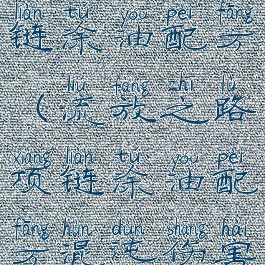 liàn tú yóu pèi fāng
链涂油配方
liú fàng zhī lù
（流放之路
xiàng liàn tú yóu pèi
项链涂油配
fāng hùn dùn shāng hài
方混沌伤害